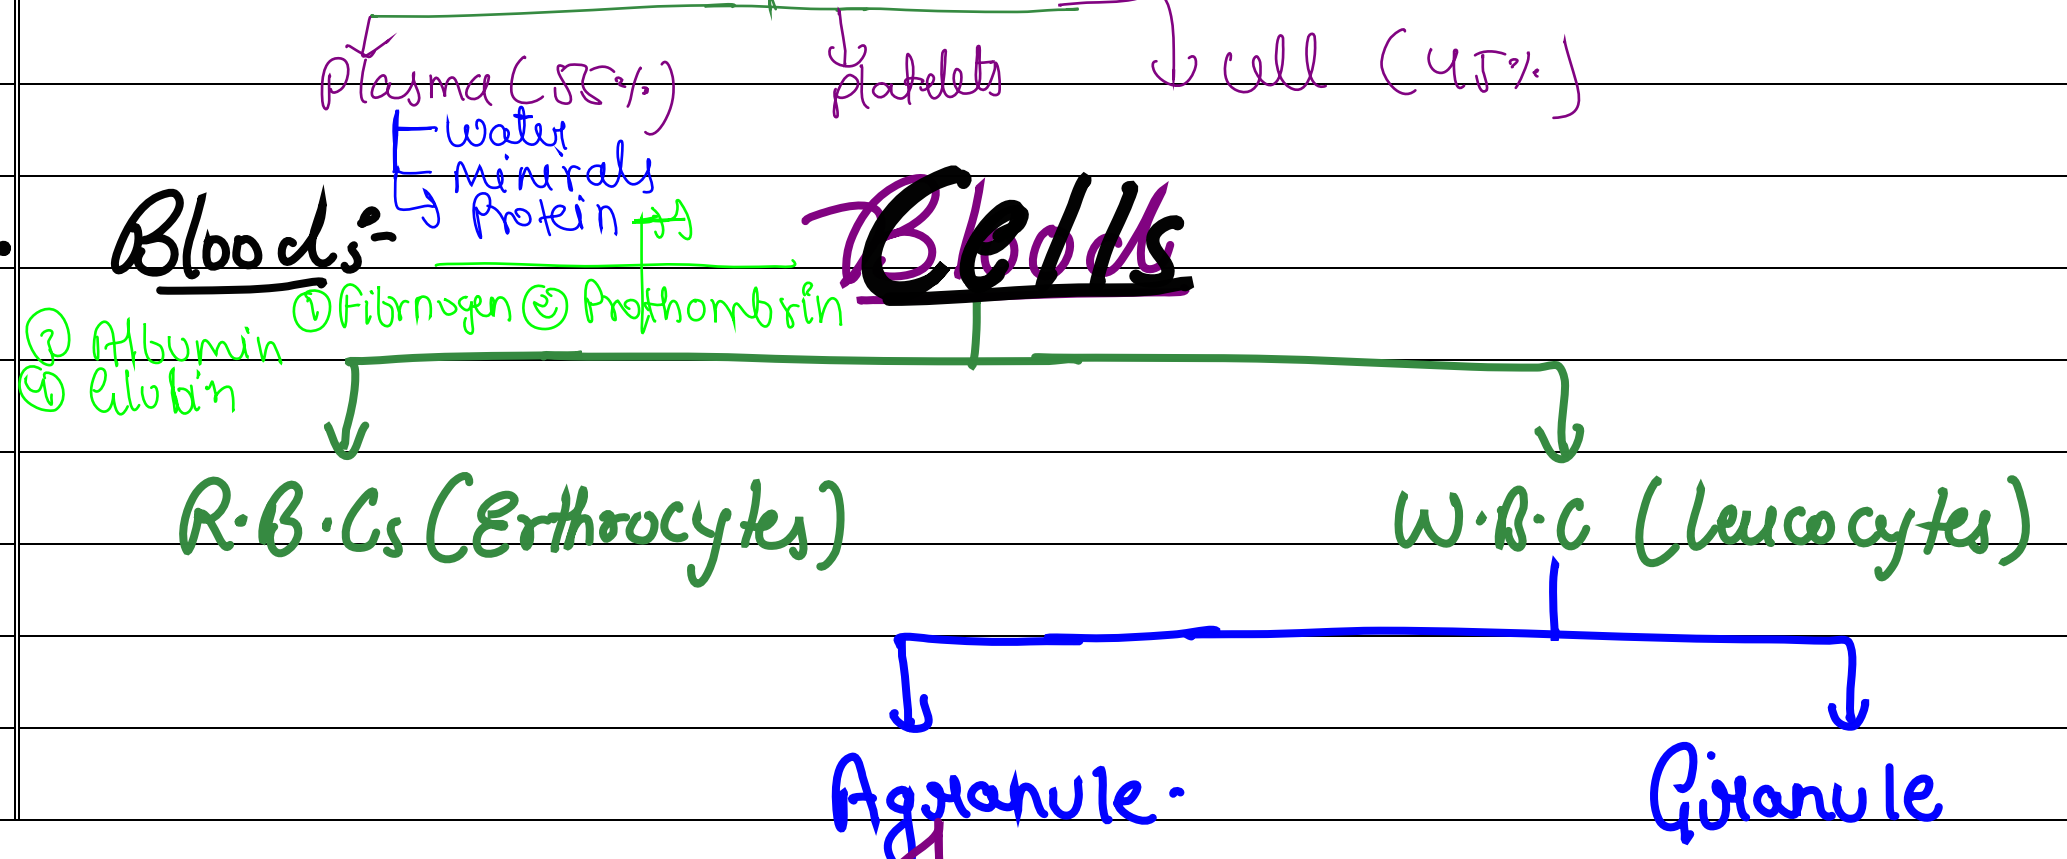 Plasma (55%) platelets cell (45%)
water
minirals
Protein
Bloods:- Cells
① Fibrnogen ② Prothombrin
③ Albumin
④ Globin
R.B.Cs (Erthrocytes) W.B.C (leucocytes)
Agranule. Granule